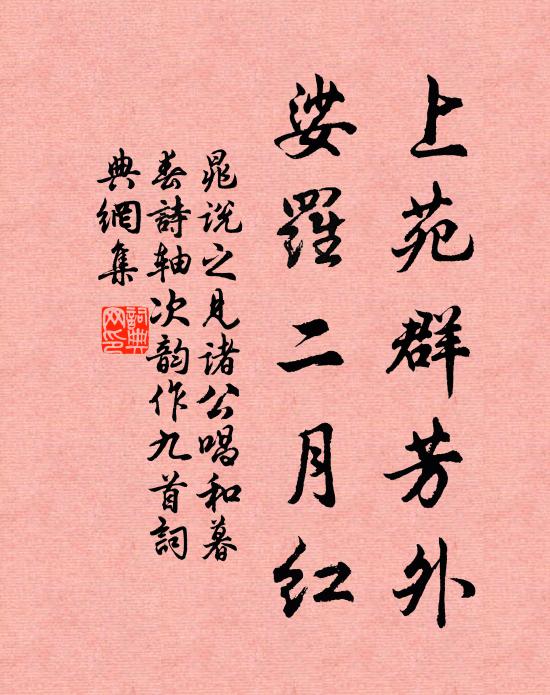 上苑群芳外
娑羅二月红
晁说之見诸公唱和暮
春詩轴次韵作九首詞
典網集
詞典网印